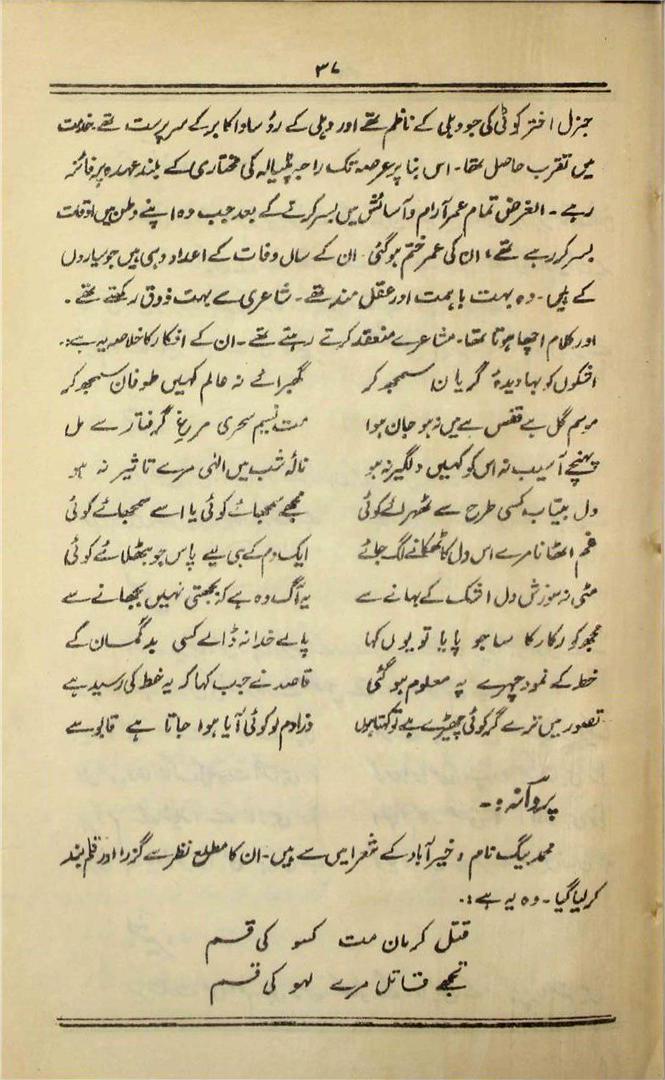 ۳۷
جنرل اختر کوٹی کی جو دہلی کے ناظم تھے اور دہلی کے رؤسا و اکابر کے سرپرست تھے خدمت
میں تقرب حاصل تھا۔ اس بنا پر عرصہ تک راجہ پٹیالہ کی مختاری کے بلند عہدہ پر فائز
رہے۔ الغرض تمام عمر آرام و آسائش میں بسر کرنے کے بعد جب وہ اپنے وطن میں اوقات
بسر کر رہے تھے، ان کی عمر ختم ہو گئی۔ ان کے سال وفات کے اعداد وہی ہیں جو سیاروں
کے ہیں۔ وہ بہت با ہمت اور عقل مند تھے۔ شاعری سے بہت ذوق رکھتے تھے۔
اور کلام اچھا ہوتا تھا۔ مشاعرے منعقد کرتے رہتے تھے۔ ان کے افکار کا خلاصہ یہ ہے:۔
اشکوں کو بہا دیدۂ گریاں سمجھ کر گھبرائے نہ عالم کہیں طوفان سمجھ کر
موسم گل ہے قفس ہے میں نہ ہو جان ہوا مت نسیم سحری مرغ گرفتار سے مل
پہنچے آسیب نہ اس کو کہیں دلگیر نہ ہو نالۂ شب میں الٰہی مرے تاثیر نہ ہو
دل بیتاب کسی طرح سے ٹھہرائے کوئی مجھے سمجھائے کوئی یا اسے سمجھائے کوئی
غم اٹھانا مرے اس دل کا ٹھکانے لگ جائے ایک دم کے ہی لیے پاس جو بٹھلائے کوئی
مٹی نہ سوزش دل اشک کے بہانے سے یہ آگ وہ ہے کہ بجھتی نہیں بجھانے سے
مجھ کو رکا رکا سا جو پایا تو یوں کہا پالے خدا نہ ڈالے کسی بد گمان کے
خط کے نمود چہرے پہ معلوم ہو گئی قاصد نے جب کہا کہ یہ خط کی رسید ہے
تصور میں ترے گر کوئی چھیڑے ہے تو کہتا ہوں ذرا دم لو کوئی آیا ہوا جاتا ہے قابو سے
پروانہ:۔
محمد بیگ نام، خیر آباد کے شعرا میں سے ہیں۔ ان کا مطلع نظر سے گزرا اور قلم بند
کر لیا گیا۔ وہ یہ ہے:۔
قتل کر مان مت کسو کی قسم
تجھے قاتل مرے لہو کی قسم